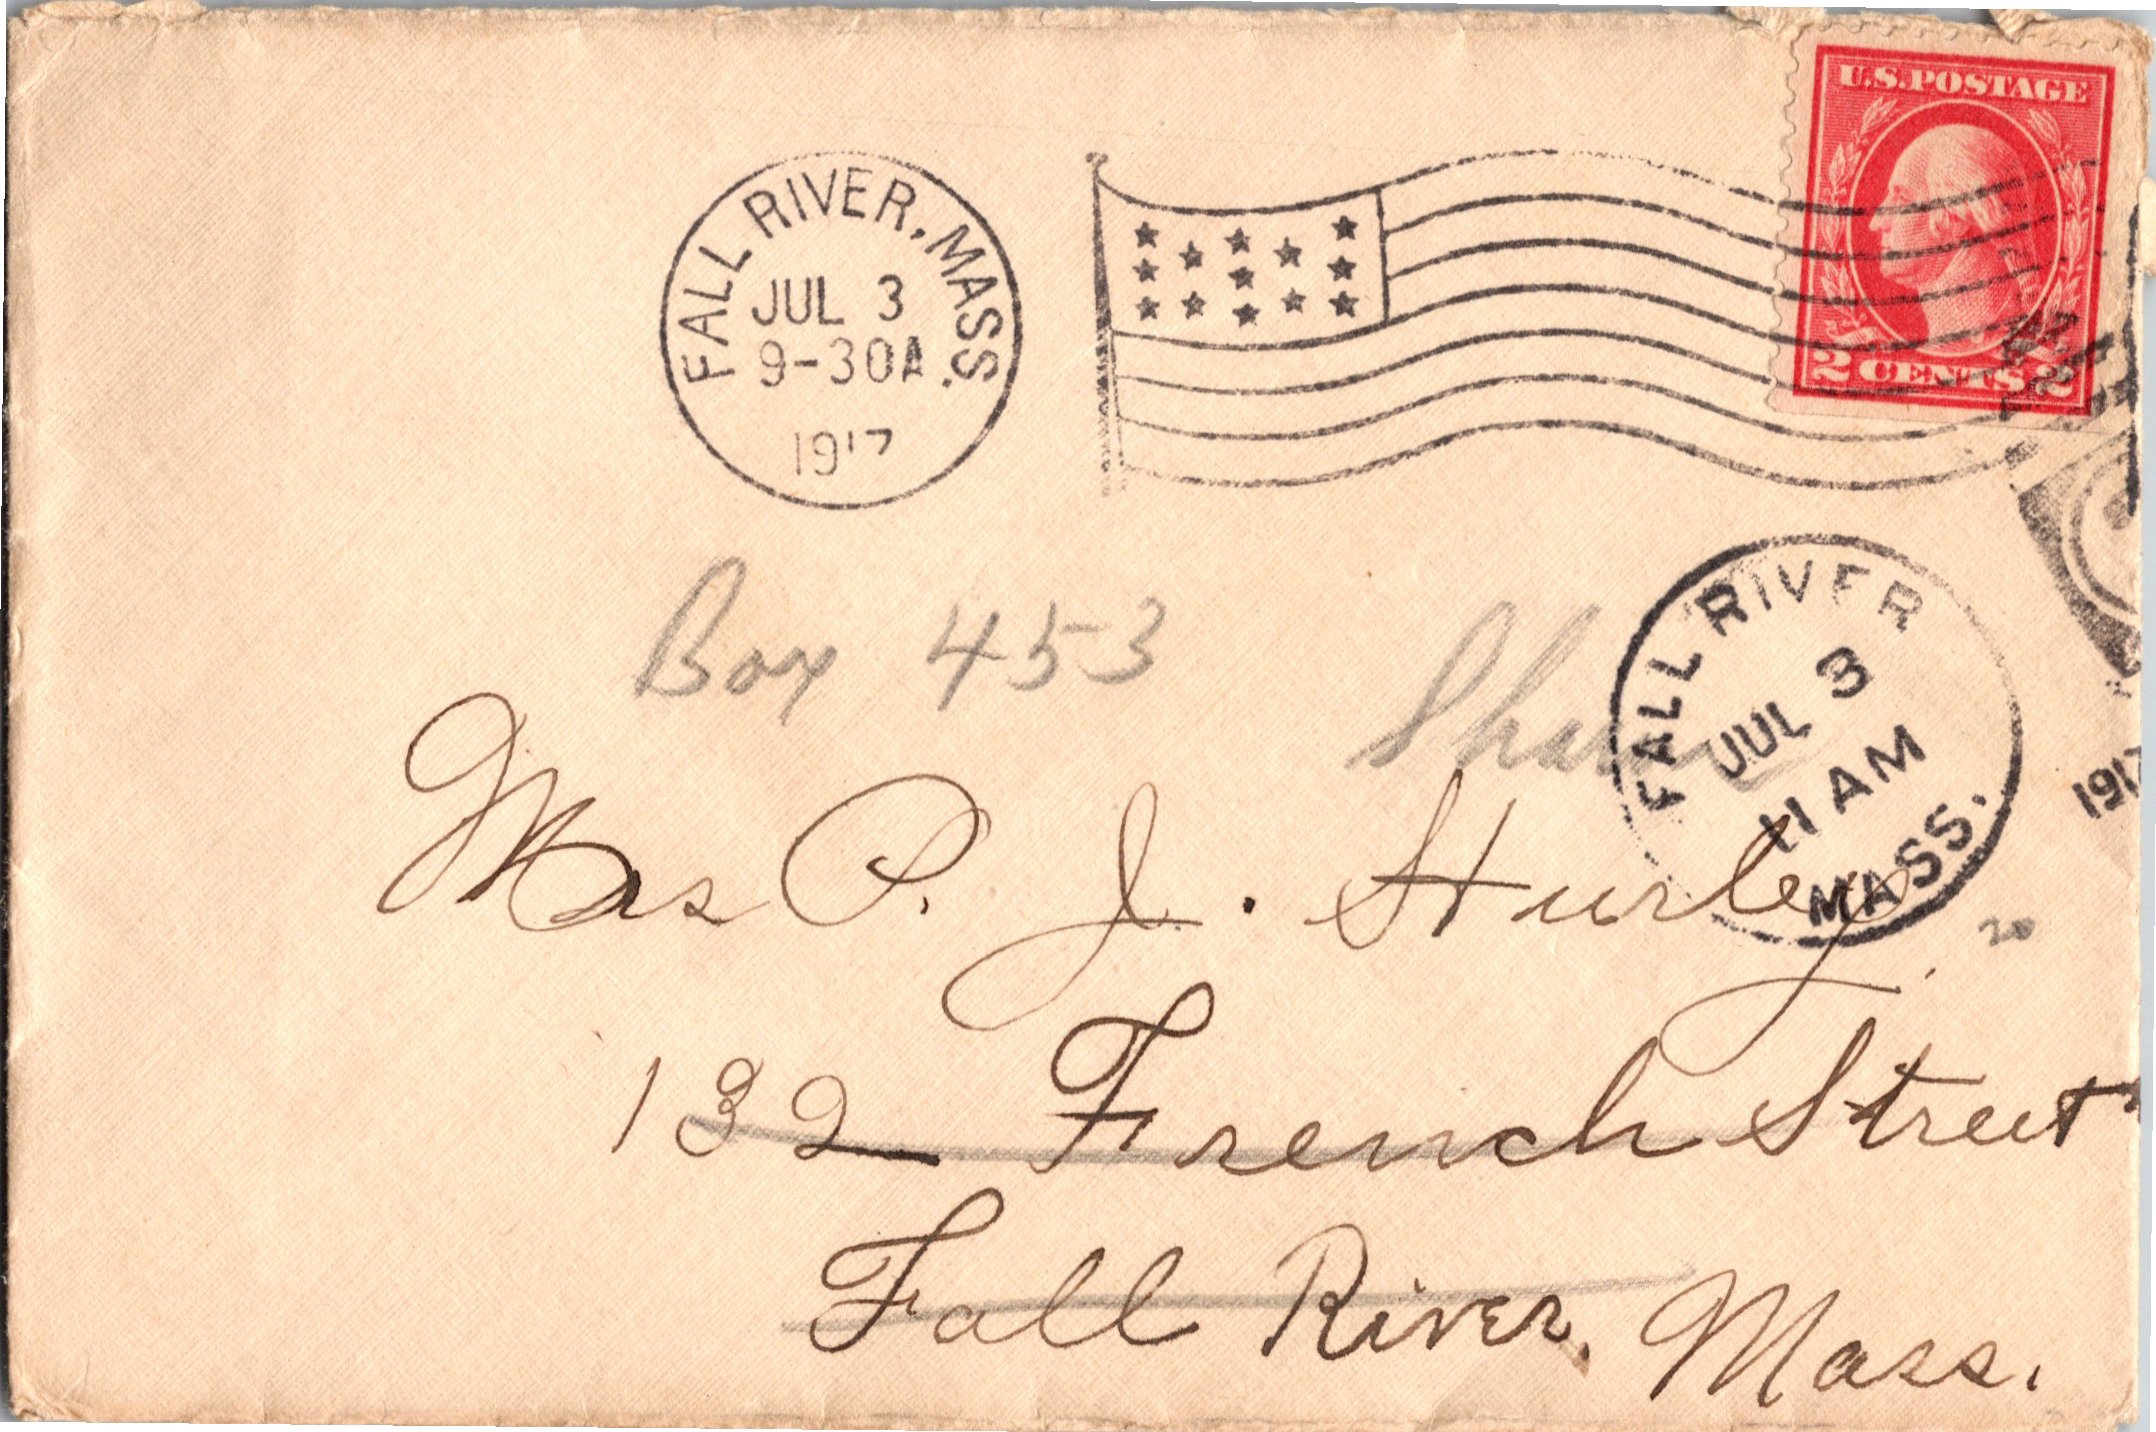 U.S.POSTAGE
2 CENTS 2
FALL RIVER, MASS.
JUL 3
9-30A
1917
FALL RIVER
JUL 3
11 AM
MASS.
1917
Box 453
Mrs P. J. Hurley,
20
132 French Street
Fall River, Mass.